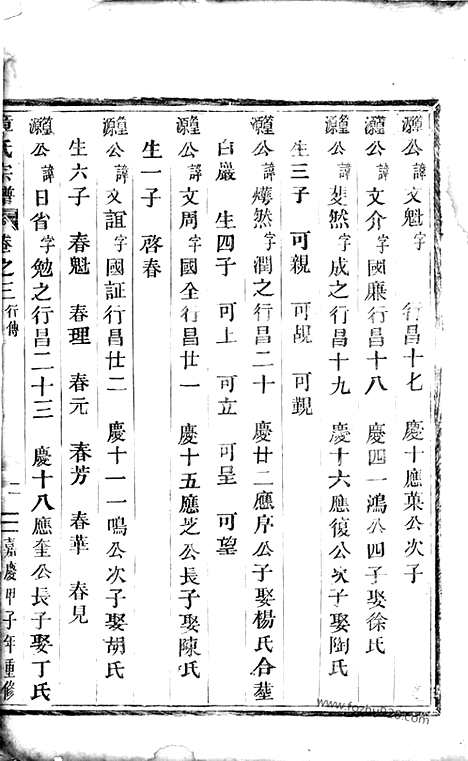 公諱文魁字 行昌十七 慶十應葉公次子
公諱文介字國廉行昌十八 慶四一鴻公四子娶徐氏
公諱斐然字成之行昌十九 慶十六應復公次子娶陶氏
生三子 可親 可覘 可覲
公諱燁然字潤之行昌二十 慶廿二應序公子娶楊氏合塟
白巖 生四子 可上 可立 可呈 可望
公諱文周字國全行昌廿一 慶十五應芝公長子娶陳氏
生一子 啓春
公諱文誼字國証行昌廿二 慶十一一鳴公次子娶胡氏
生六子 春魁 春理 春元 春芳 春華 春見
公諱日省字勉之行昌二十三 慶十八應奎公長子娶丁氏
氏宗譜 卷之三 行傳 二 嘉慶甲子年重修
www.fozhu920.com